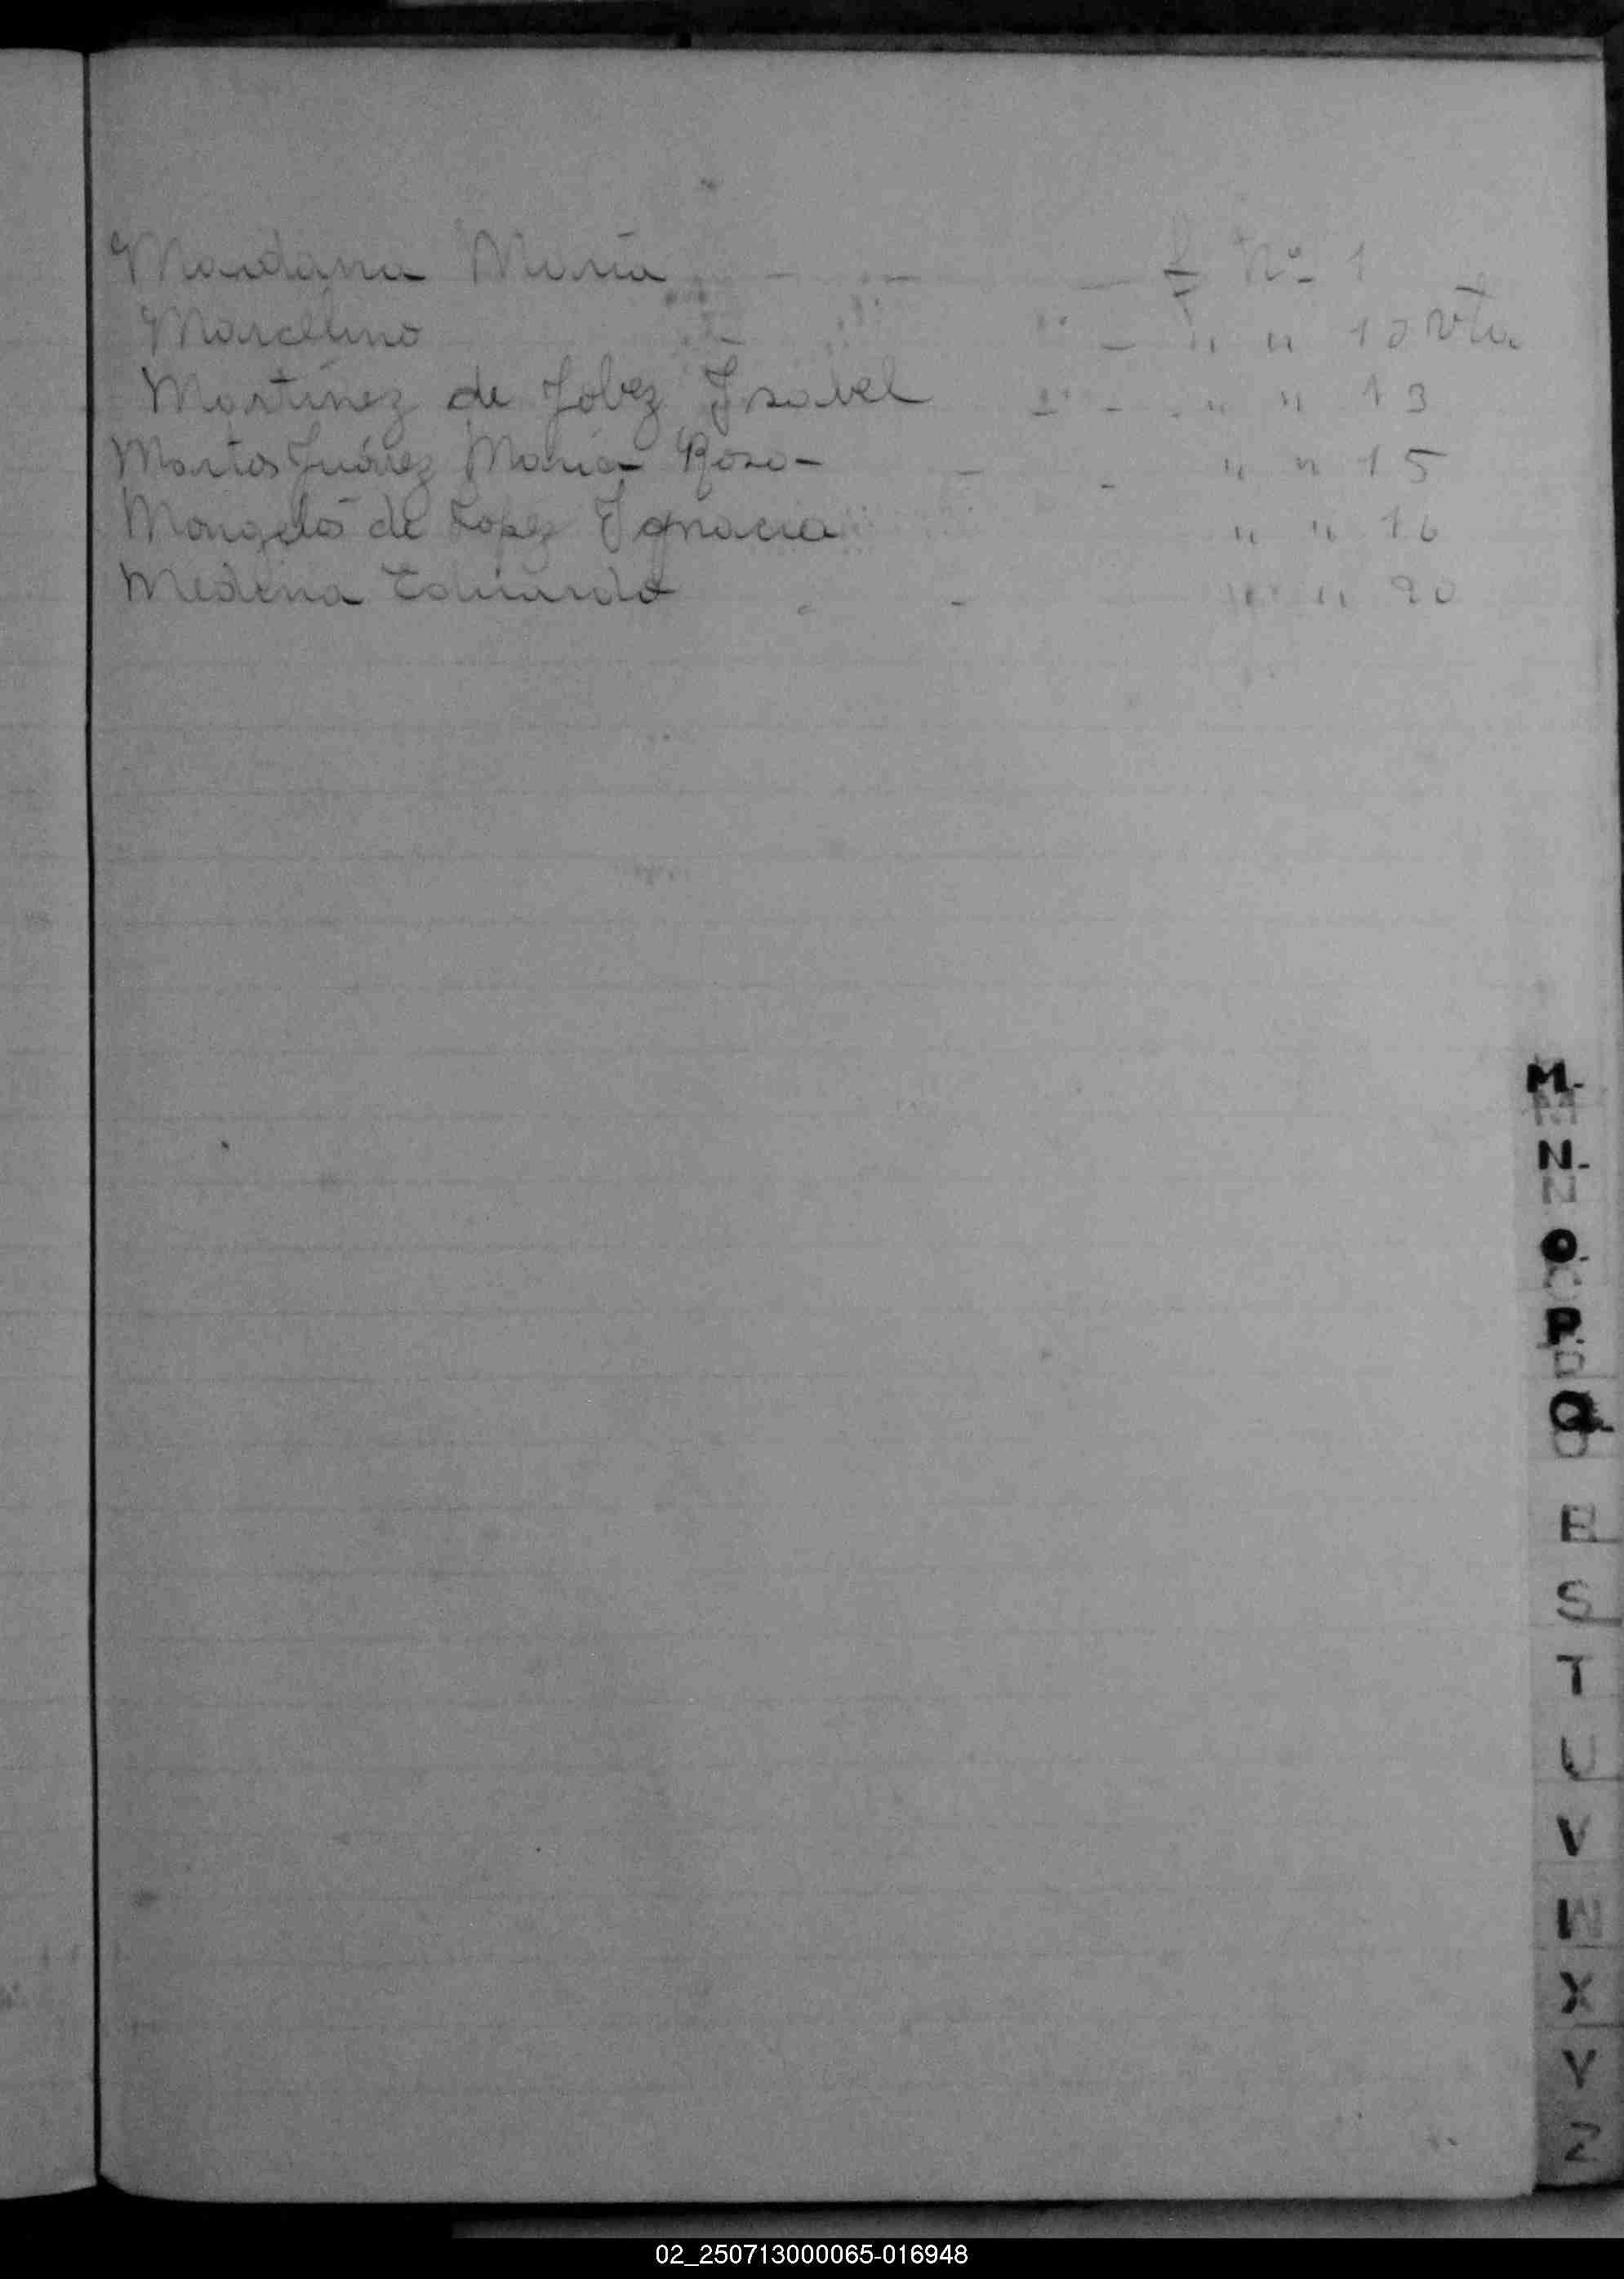 Maidana María - - - f Nº 1
Marcelino - " " 10 vta
Martínez de Jobez Isabel - - " " 13
Martos Juárez María Rosa - - - " " 15
Mongelós de Lopez Ignacia " " 16
Medina Eduardo - - " " 20
M.
N.
O.
P.
Q.
R
S
T
U
V
W
X
Y
Z
02_250713000065-016948